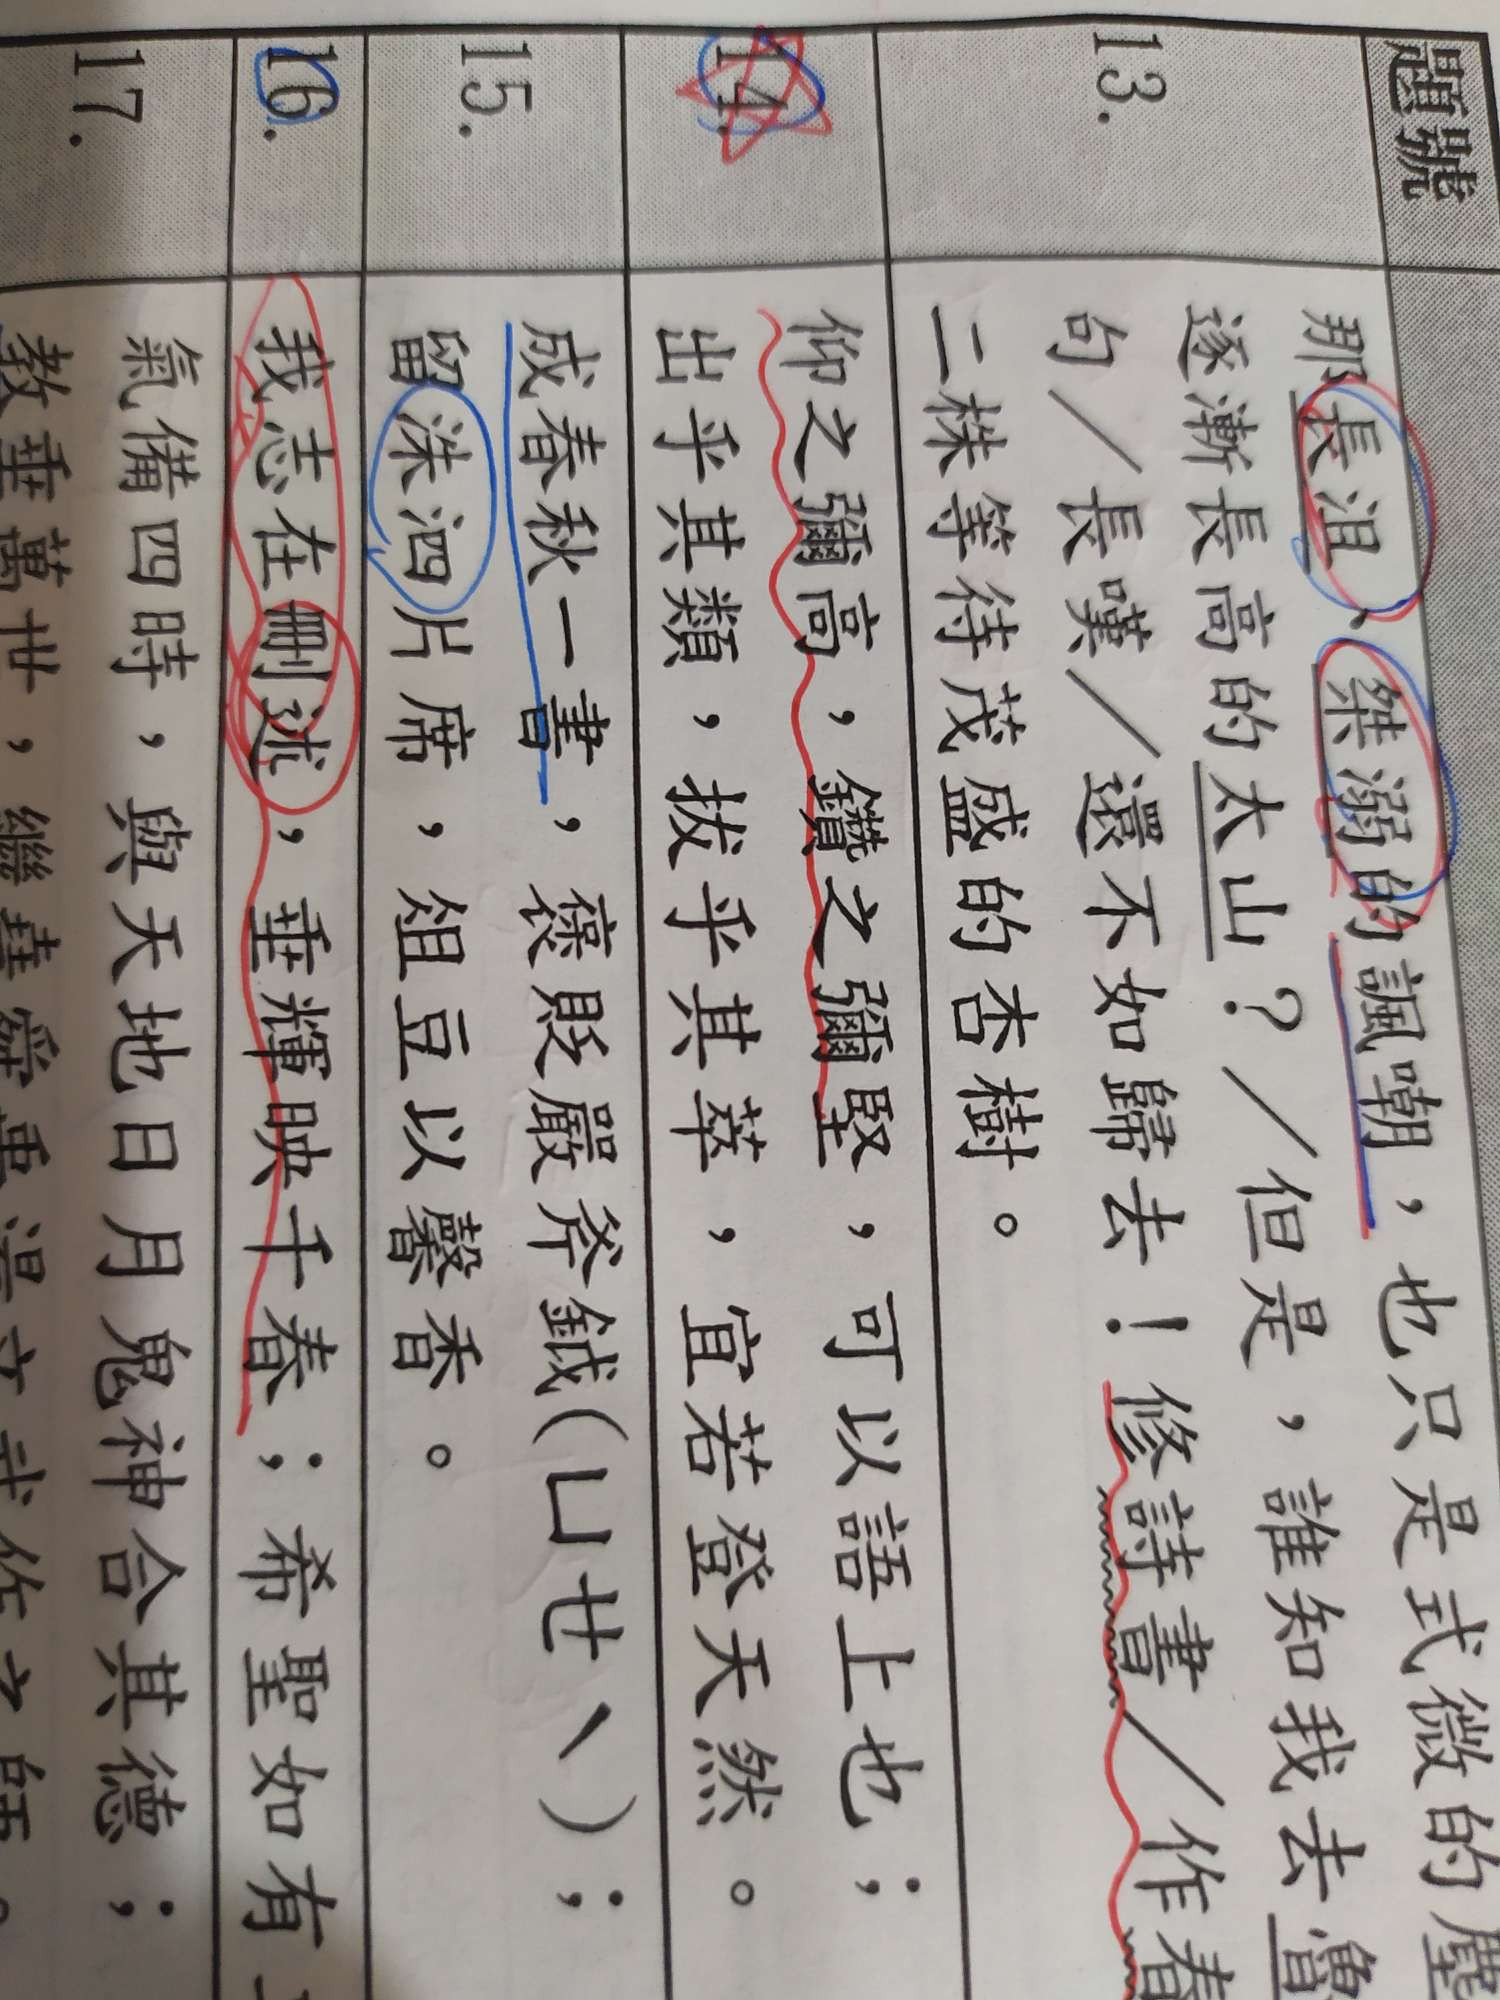 題號
13.
那長沮、桀溺的諷嘲，也只是式微的塵
逐漸長高的太山？／但是，誰知我去魯
句／長嘆／還不如歸去！修詩書／作春
二株等待茂盛的杏樹。
14.
仰之彌高，鑽之彌堅，可以語上也；
出乎其類，拔乎其萃，宜若登天然。
15.
成春秋一書，褒貶嚴斧鉞(ㄩㄝˋ)；
留洙泗片席，俎豆以馨香。
16.
我志在刪述，垂輝映千春；希聖如有
17.
氣備四時，與天地日月鬼神合其德；
教垂萬世，繼堯舜禹湯文武作之師。